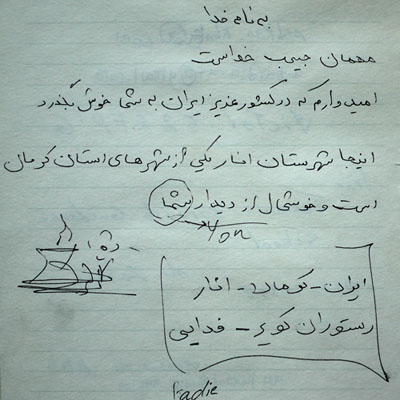 به نام خدا
مهمان حبیب خداست
امیدوارم که در کشور عزیز ایران به شما خوش بگذرد
اینجا شهرستان انار یکی از شهرهای استان کرمان
است و خوشحال از دیدار شما
you
ایران - کرمان - انار
رستوران کویر - فدایی
Fadie